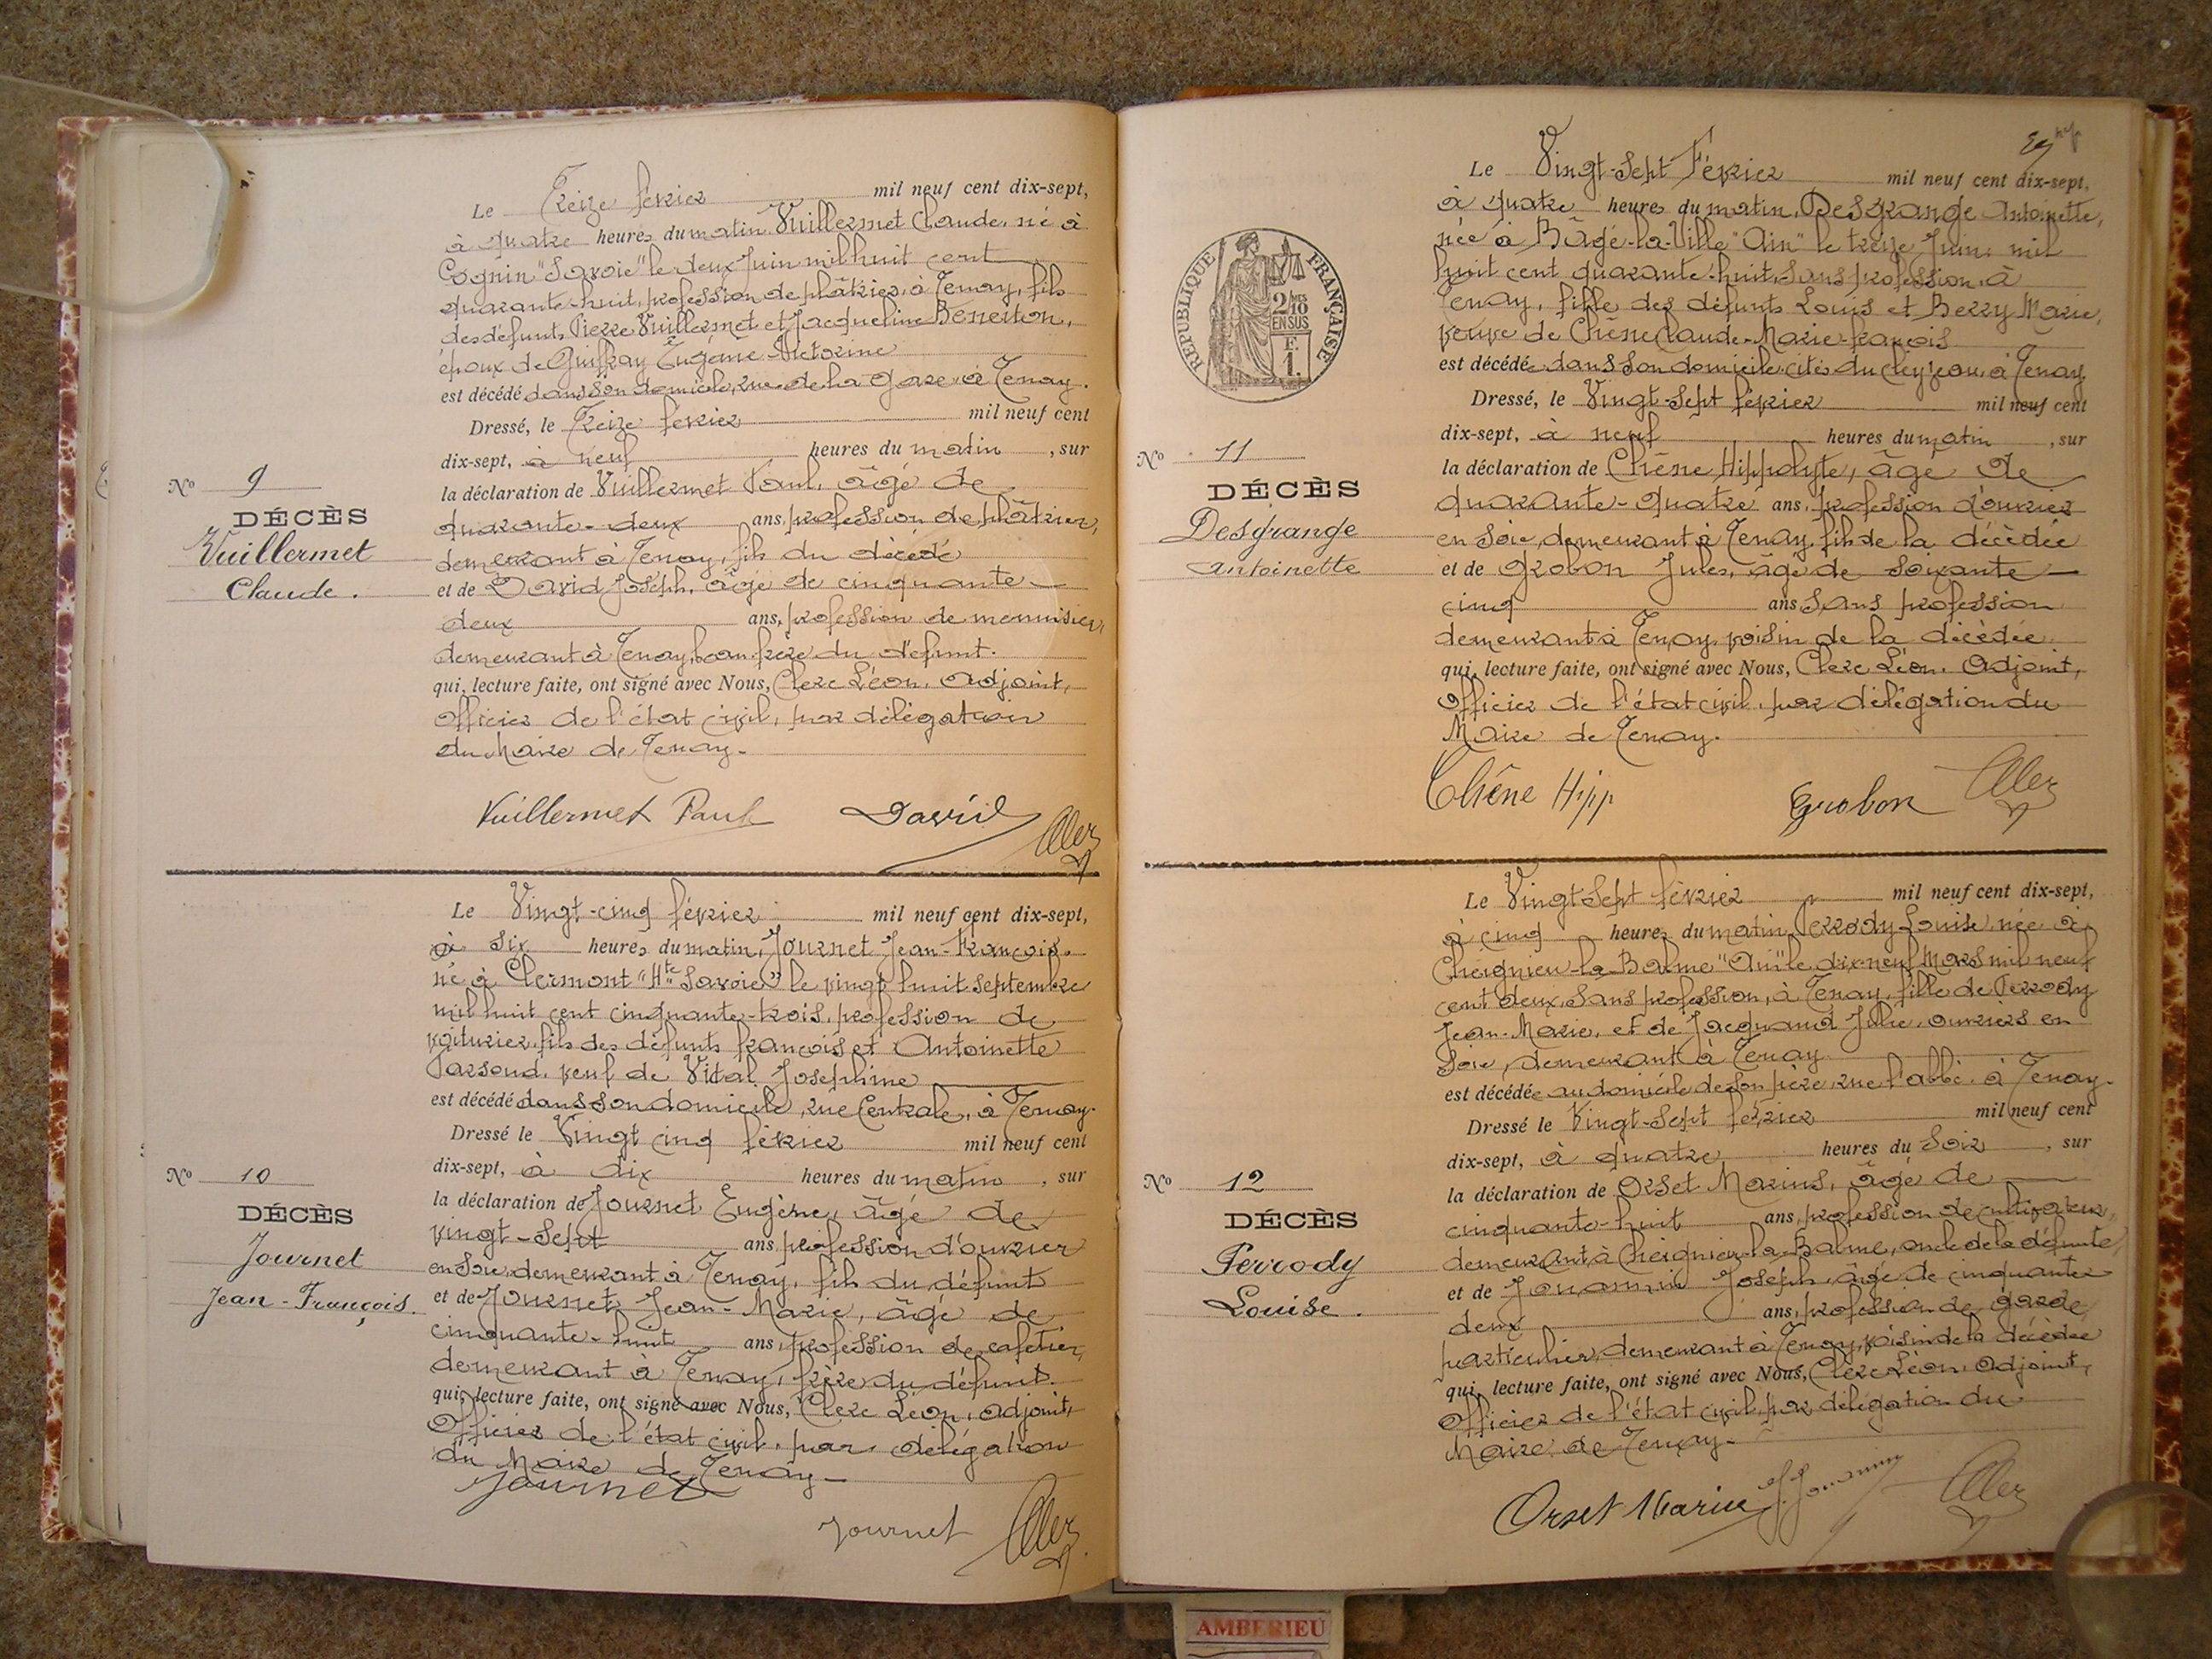 Le Treize février mil neuf cent dix-sept,
à quatre heures du matin, Vuillermet Claude, né à
Cognin "Savoie" le deux Juin mil huit cent
quarante-huit, profession de plâtrier, à Tenay, fils
des défunts Pierre Vuillermet et Jacqueline
époux de Guiffray Eugénie Victorine
est décédé dans son domicile, rue de la Gare, à Tenay.
Dressé, le Treize février mil neuf cent
dix-sept, à neuf heures du matin, sur
la déclaration de Vuillermet Paul, âgé de
quarante-deux ans, profession de plâtrier,
demeurant à Tenay, fils du décédé
et de David Joseph, âgé de cinquante-
deux ans, profession de menuisier,
demeurant à Tenay, beau-frère du défunt.
qui, lecture faite, ont signé avec Nous, Clerc Léon, Adjoint,
officier de l'état civil, par délégation
du Maire de Tenay.
No 9
DÉCÈS
Vuillermet
Claude.
Vuillermet Paul David Clerc
Le Vingt-cinq février mil neuf cent dix-sept,
à six heures du matin, Journet Jean-François.
né à Clermont "Hte Savoie" le vingt huit septembre
mil huit cent cinquante-trois, profession de
voiturier, fils des défunts François et Antoinette
Parsoud, veuf de Vital Josephine
est décédé dans son domicile, rue Centrale, à Tenay.
Dressé le Vingt cinq février mil neuf cent
dix-sept, à dix heures du matin, sur
la déclaration de Journet Eugène, âgé de
vingt-sept ans, profession d'ouvrier
en soie, demeurant à Tenay, fils du défunt
et de Journet Jean-Marie, âgé de
cinquante-huit ans, profession de cafetier,
demeurant à Tenay, frère du défunt.
qui, lecture faite, ont signé avec Nous, Clerc Léon, adjoint,
officier de l'état civil, par délégation
du Maire de Tenay-
No 10
DÉCÈS
Journet
Jean-François.
Journet
Journet Clerc
Le Vingt-Sept Février mil neuf cent dix-sept,
à quatre heures du matin, Desgrange Antoinette,
née à Bâgé-la-Ville "Ain" le treize Juin mil
huit cent quarante-huit, sans profession, à
Tenay, fille des défunts Louis et Berry Marie,
veuve de Chêne Claude-Marie-François
est décédée dans son domicile, cités du Cleyzou, à Tenay
Dressé, le Vingt-Sept février mil neuf cent
dix-sept, à neuf heures du matin, sur
la déclaration de Chêne Hippolyte, âgé de
quarante-quatre ans, profession d'ouvrier
en soie, demeurant à Tenay, fils de la décédée
et de Grobon Jules, âgé de soixante-
cinq ans sans profession
demeurant à Tenay, voisin de la décédée.
qui, lecture faite, ont signé avec Nous, Clerc Léon, Adjoint,
officier de l'état civil, par délégation du
Maire de Tenay.
RÉPUBLIQUE FRANÇAISE
2/10 MES
EN SUS
F.
1.
No 11
DÉCÈS
Desgrange
Antoinette
Chêne Hipp Grobon Clerc
Le Vingt Sept février mil neuf cent dix-sept,
à cinq heures du matin Perrody Louise, née à
Cheignieu-la-Balme "Ain" le dix-neuf Mars mil neuf
cent deux, sans profession, à Tenay, fille de Perrody
Jean-Marie, et de Jacquand Julie, ouvriers en
soie, demeurant à Tenay
est décédée au domicile de son père, rue l'abbé, à Tenay.
Dressé le Vingt-Sept février mil neuf cent
dix-sept, à quatre heures du soir, sur
la déclaration de Orset Marius, âgé de
cinquante-huit ans, profession de cultivateur,
demeurant à Cheignieu-la-Balme, oncle de la défunte,
et de Jouannin Joseph, âgé de cinquante
deux ans, profession de garde
particulier, demeurant à Tenay, voisin de la décédée
qui, lecture faite, ont signé avec Nous, Clerc Léon, Adjoint,
officier de l'état civil, par délégation du
Maire de Tenay-
No 12
DÉCÈS
Perrody
Louise.
Orset Marius J. Jouannin Clerc
AMBERIEU